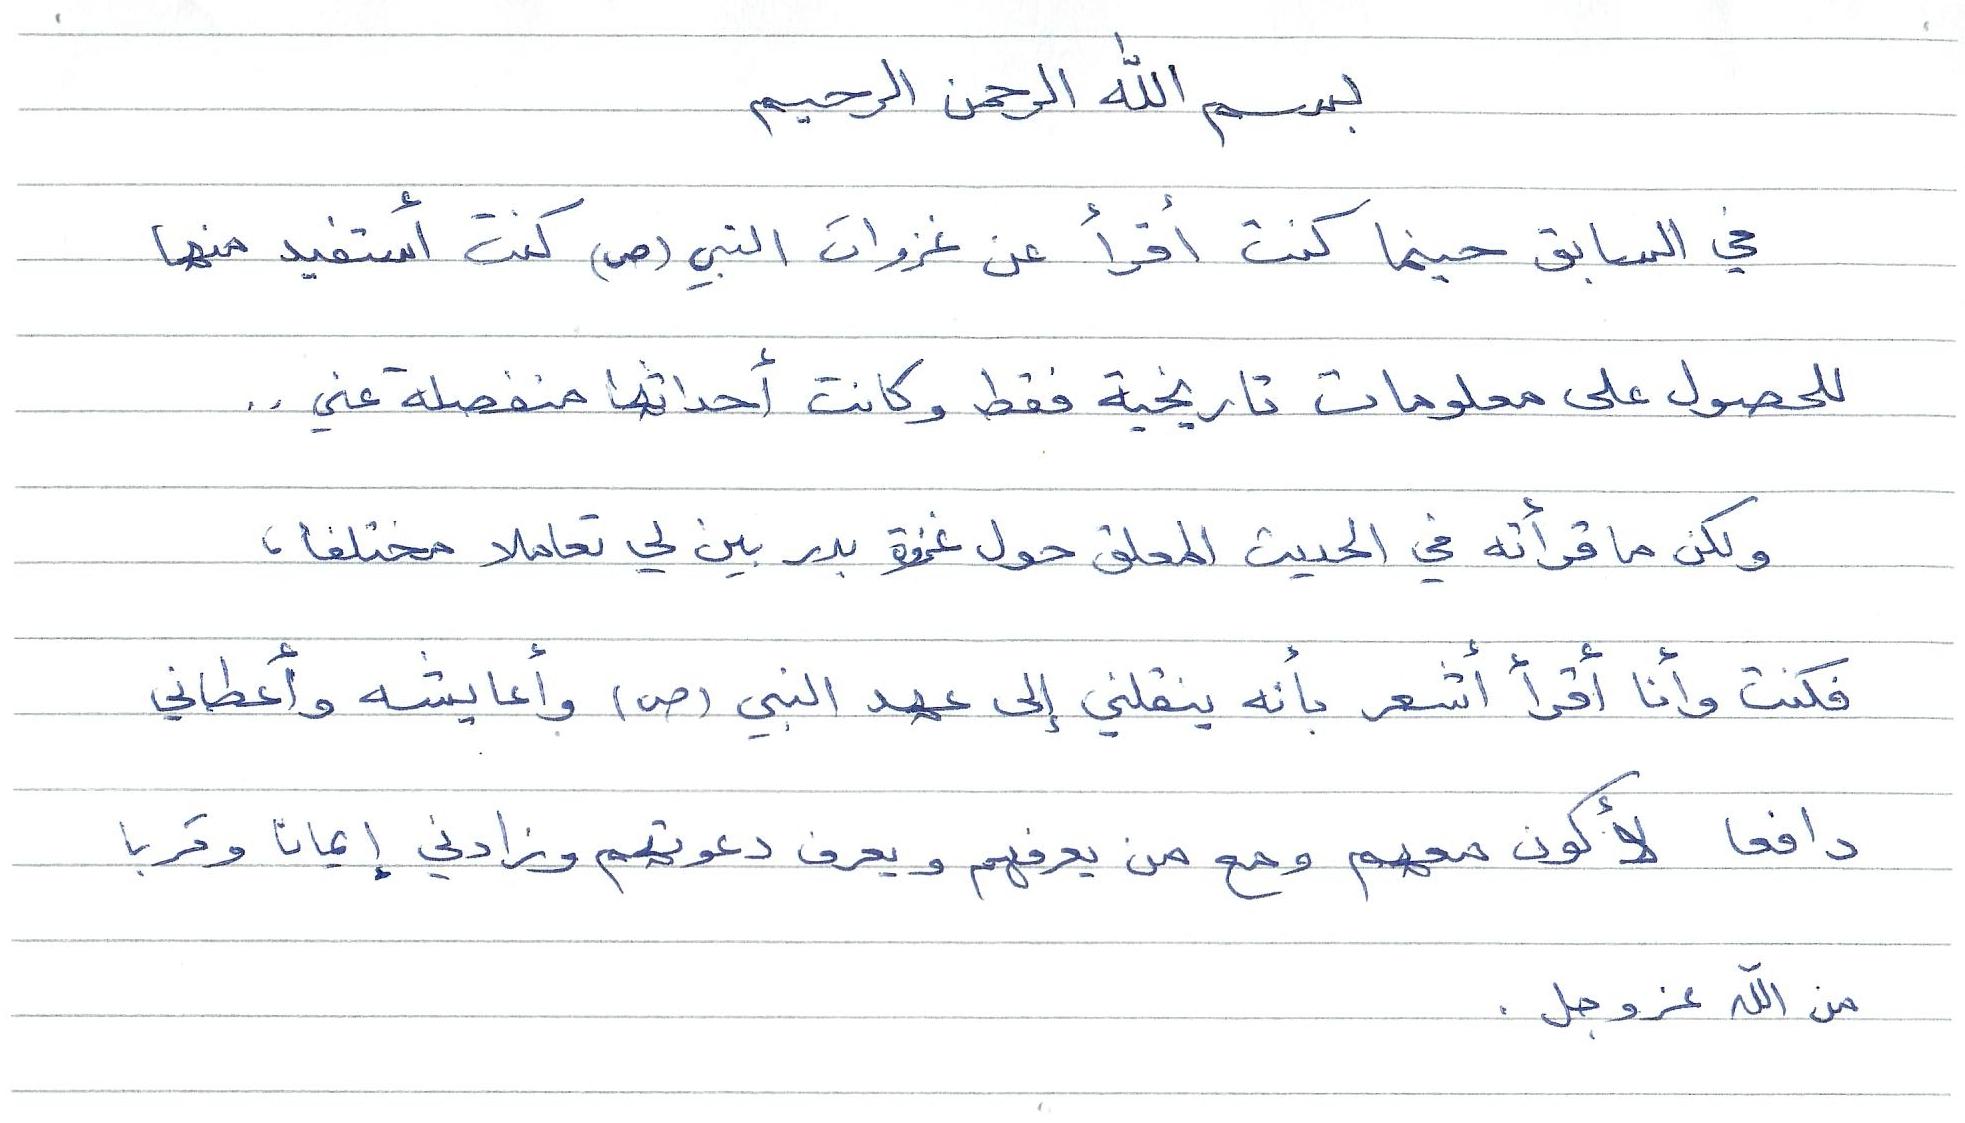 بسم الله الرحمن الرحيم
في السابق حينما كنت أقرأ عن غزوات النبي (ص) كنت أستفيد منها
للحصول على معلومات تاريخية فقط وكانت أحداثها منفصلة عني ..
ولكن ما قرأته في الحديث المعلق حول غزوة بدر بين لي تعاملا مختلفا ،
فكنت وأنا أقرأ أشعر بأنه ينقلني إلى عهد النبي (ص) وأعايشه وأعطاني
دافعا لأكون معهم ومع من يعرفهم ويعرف دعوتهم وزادني إيمانا وقربا
من الله عز وجل .